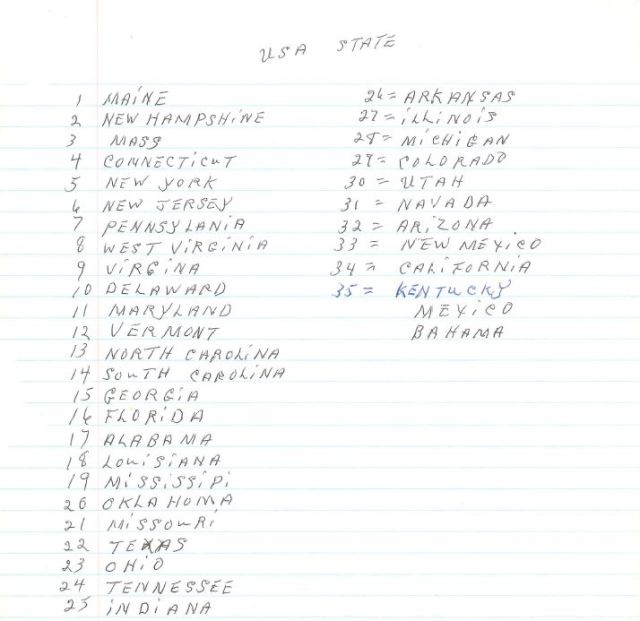 USA STATE
1 MAINE
2 NEW HAMPSHINE
3 MASS
4 CONNECTICUT
5 NEW YORK
6 NEW JERSEY
7 PENNSYLANIA
8 WEST VIRGINIA
9 VIRGINA
10 DELAWARD
11 MARYLAND
12 VERMONT
13 NORTH CAROLINA
14 SOUTH CAROLINA
15 GEORGIA
16 FLORIDA
17 ALABAMA
18 LOUISIANA
19 MISSISSIPI
20 OKLAHOMA
21 MISSOURI
22 TEXAS
23 OHIO
24 TENNESSEE
25 INDIANA
26 = ARKANSAS
27 = ILLINOIS
28 = MICHIGAN
29 = COLORADO
30 = UTAH
31 = NAVADA
32 = ARIZONA
33 = NEW MEXICO
34 = CALIFORNIA
35 = KENTUCKY
MEXICO
BAHAMA